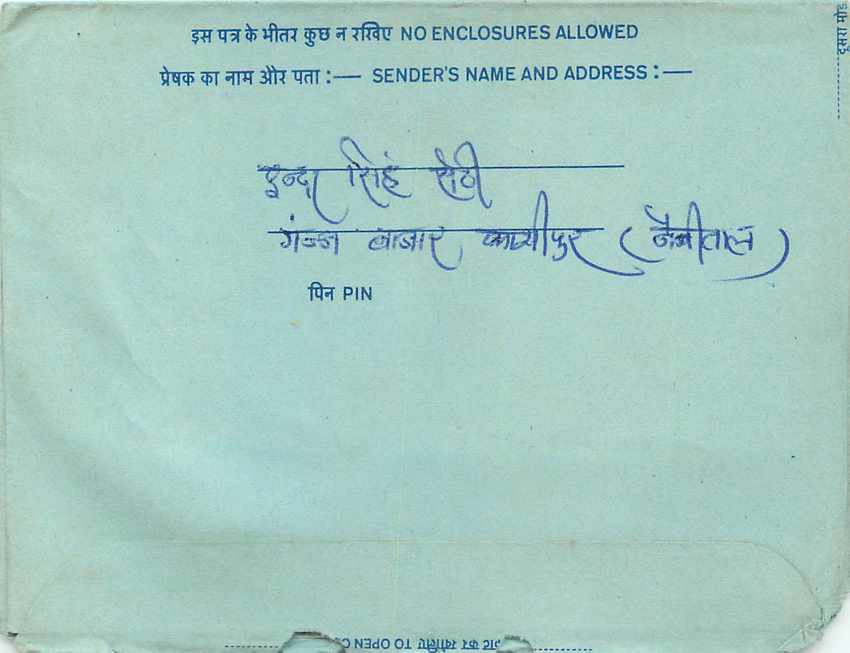 इस पत्र के भीतर कुछ न रखिए NO ENCLOSURES ALLOWED
प्रेषक का नाम और पता :— SENDER'S NAME AND ADDRESS :—
इन्द्र सिंह सेठी
गंज्ज बाजार काशीपुर (नैनीताल)
पिन PIN
दूसरा मोड़
काट कर खोलिए TO OPEN